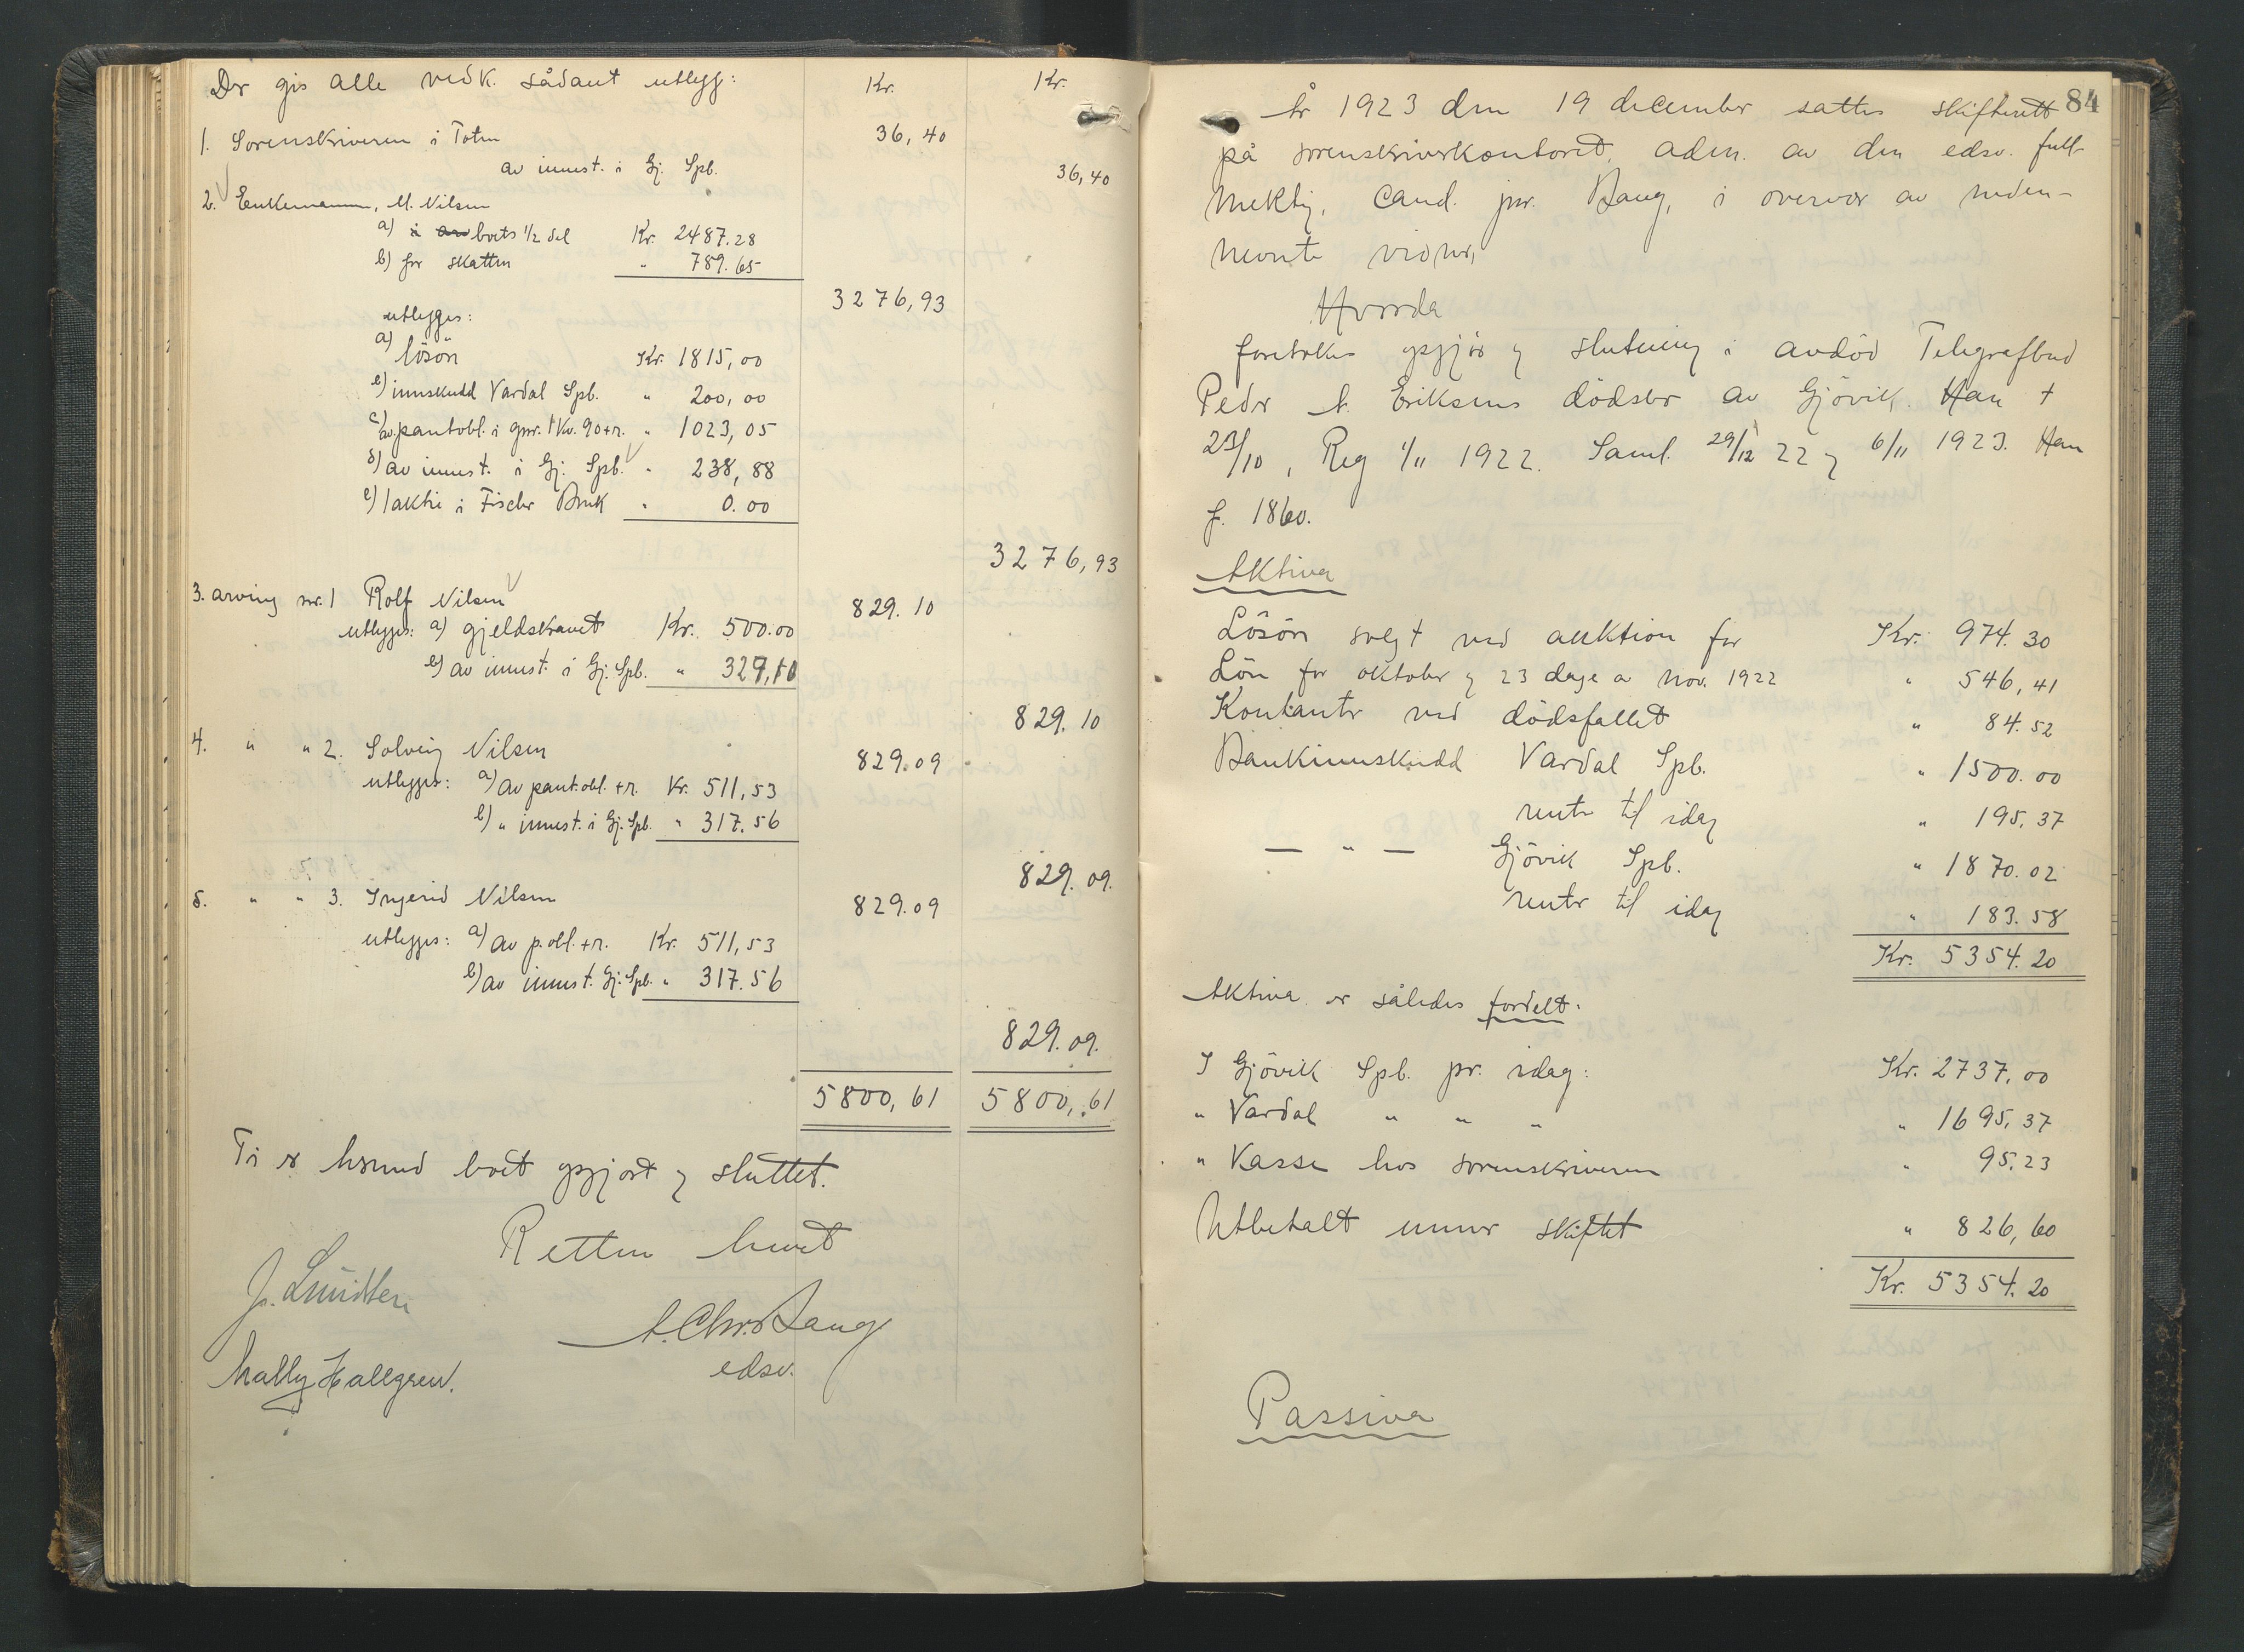 Der gis alle vedk. sådant utlegg:
Kr. Kr.
1. Sorenskriveren i Toten 36,40
av innest. i Gj. Spb. 36,40
2. Enkemannen, M. Nilsen
a) boets 1/2 del Kr. 2487.28
b) for skatten " 789.65
3276,93
utlegges:
a) løsøre Kr. 1815,00
b) innskudd Vardal Spb. " 200,00
c) av pantobl. i gnr. 1 bnr. 90 + r. " 1023,05
d) av innest. i Gj. Spb. " 238,88
e) 1 aktie i Fischer Bruk " 0.00
3276,93
3. arving nr. 1 Rolf Nilsen 829.10
utlegges: a) gjeldskravet Kr. 500.00
b) av innest. i Gj. Spb. " 329,10
829.10
4. " " 2. Solveig Nilsen 829.09
utlegges: a) av pant.obl. + r. Kr. 511,53
b) " innest. i Gj. Spb. " 317.56
829.09.
5. " " 3. Ingerid Nilsen 829.09
utlegges: a) av p.obl. + r. Kr. 511,53
b) av innest. Gj. Spb. " 317.56
829.09.
5800,61 5800,61
Ti er herved boet opgjort og sluttet.
Retten hevet
A. Chr. Bang
edsv.
Mally Hallgren.
84
År 1923 den 19 december sattes skifterett
på sorenskriverkontoret, adm. av den edsv. full-
mektig, cand. jur. Bang, i overvær av neden-
nevnte vidner,
Hvorda
foretokes opgjør og slutning i avdød Telegrafbud
Peder A. Eriksens dødsbo av Gjøvik. Han †
23/10, Reg 1/11 1922. Saml. 29/12 22 og 6/11 1923. Han
f. 1860.
Aktiva
Løsøre solgt ved auktion for Kr. 974.30
Løn for oktober og 23 dage av nov. 1922 " 546,41
Kontanter ved dødsfallet " 84.52
Bankinnskudd Vardal Spb. " 1500.00
renter til idag " 195.37
— " — Gjøvik Spb. " 1870.02
renter til idag " 183.58
Kr. 5354.20
Aktiva er således fordelt:
I Gjøvik Spb. pr. idag: Kr. 2737,00
" Vardal " " " " 1695,37
" Kasse hos sorenskriveren " 95.23
Utbetalt under skiftet " 826,60
Kr. 5354.20
Passiva